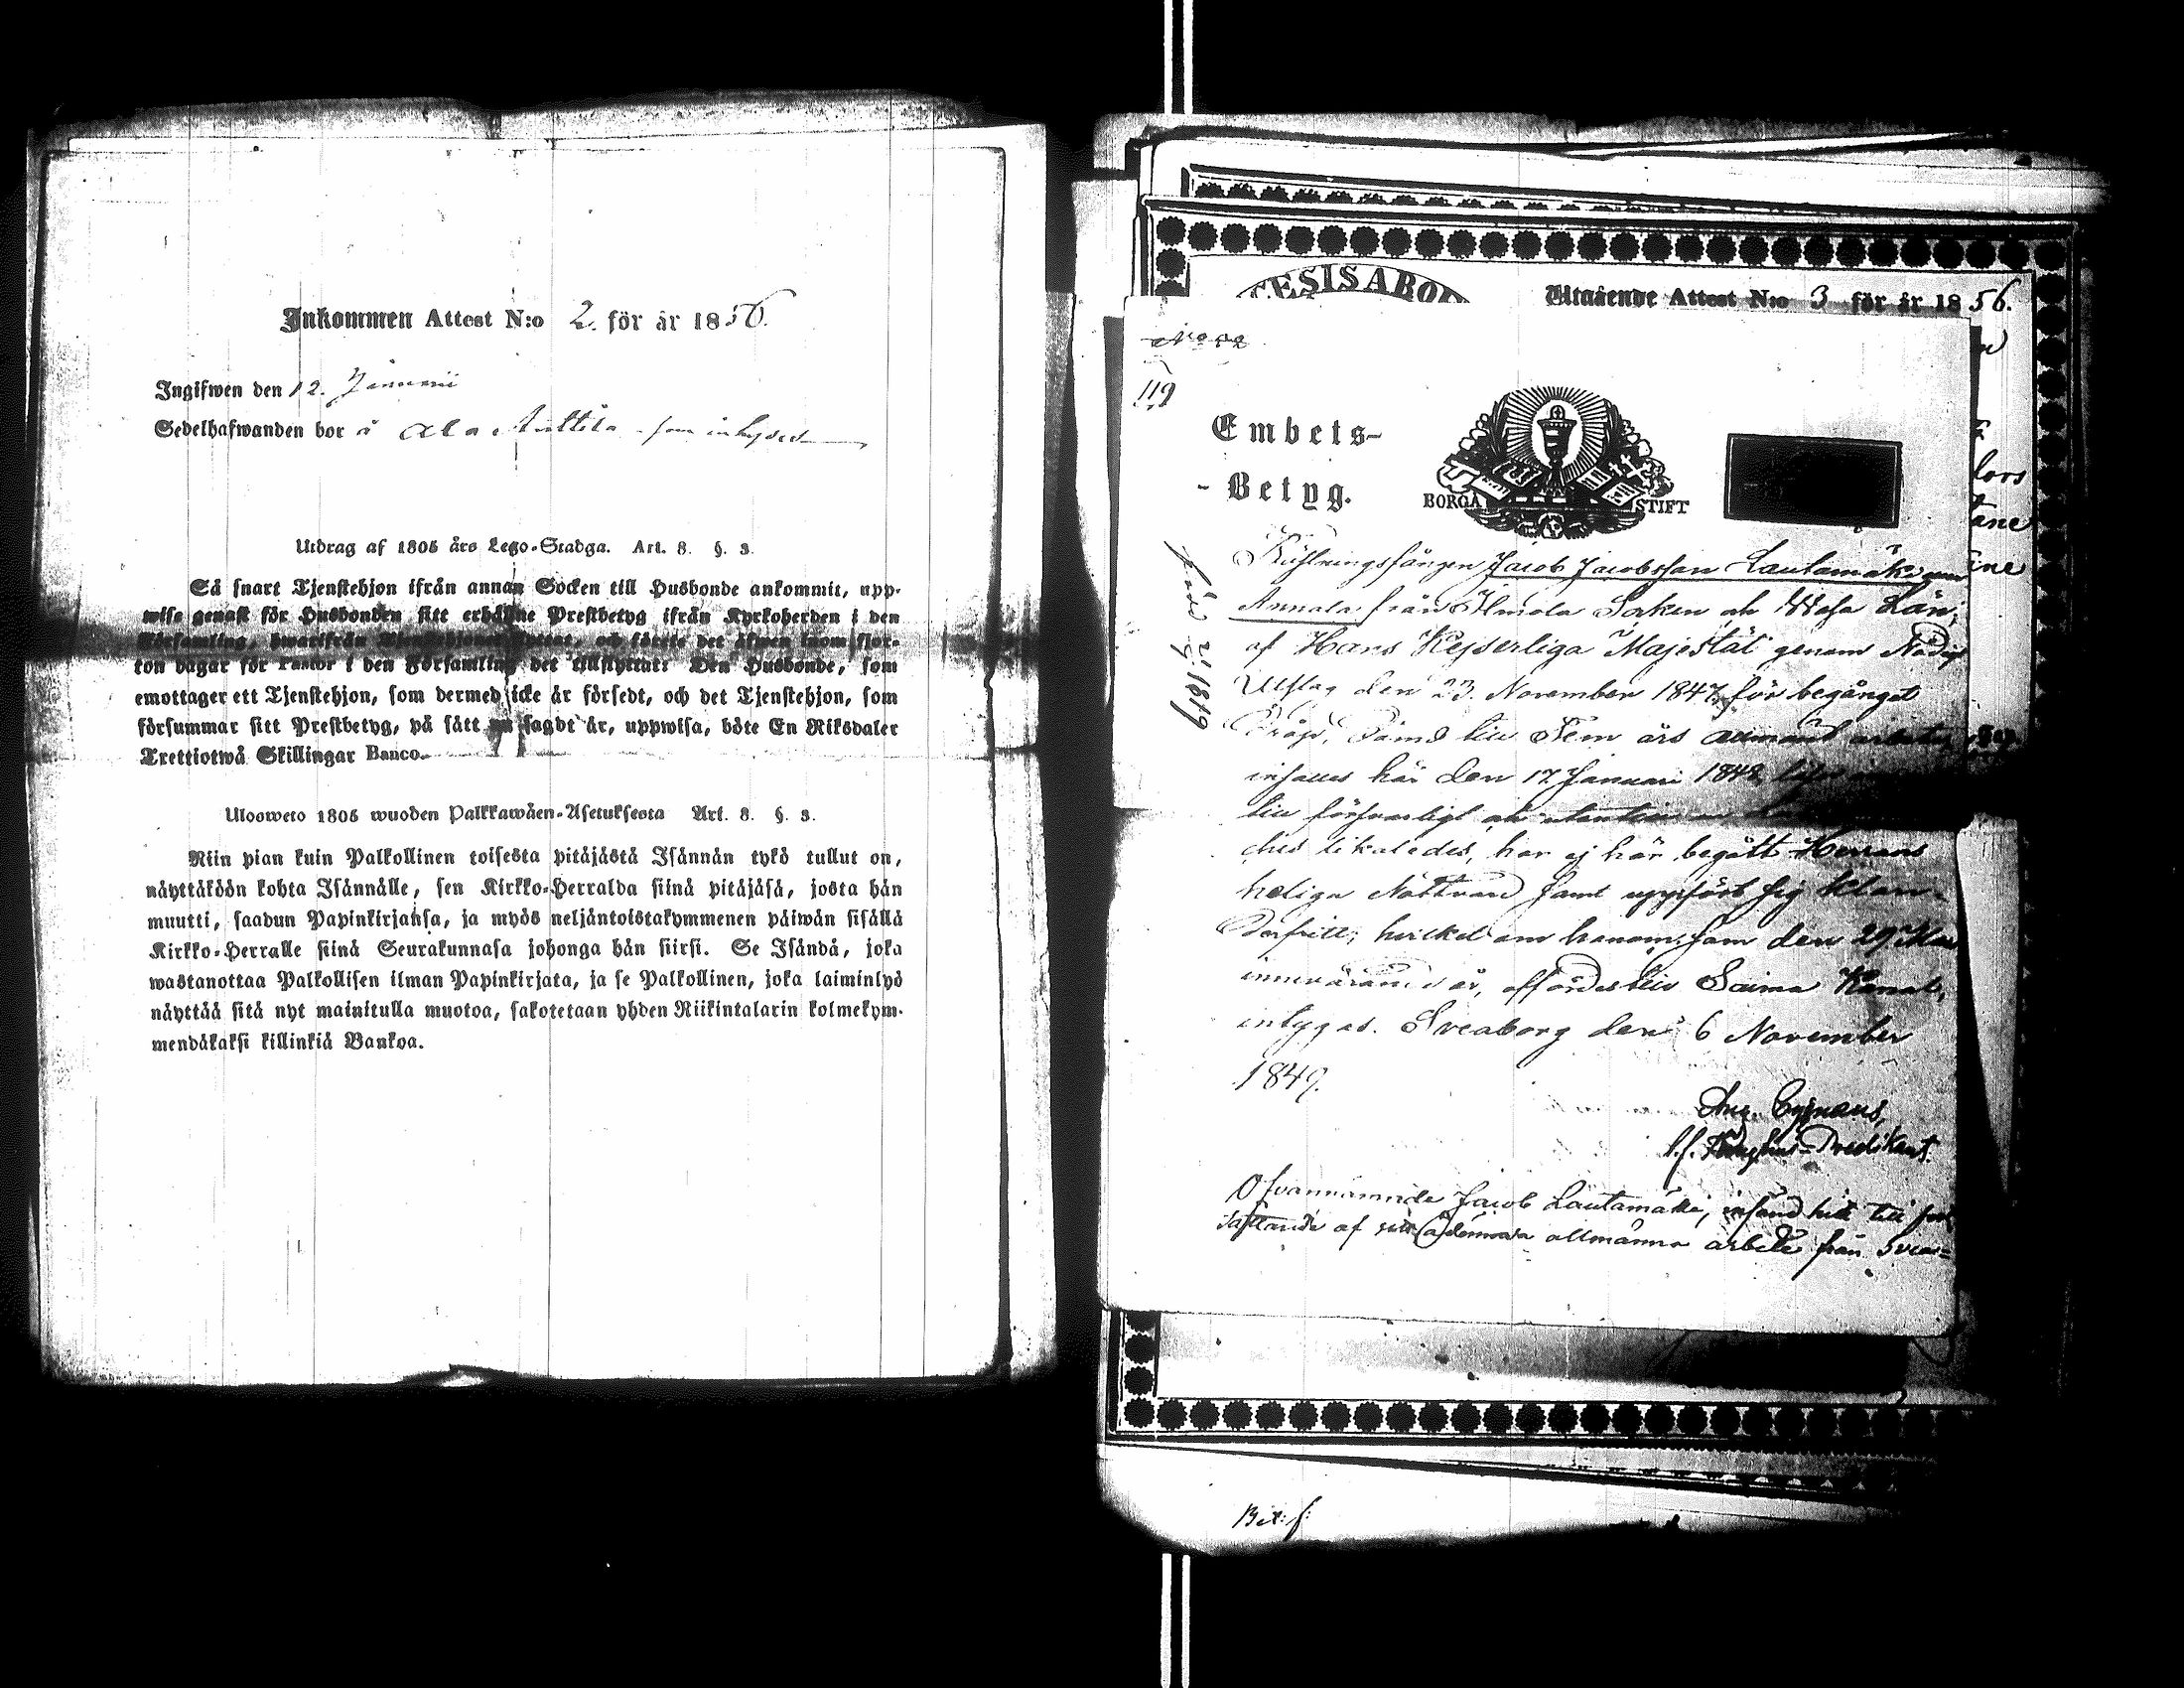 Inkommen Attest N:o 2. för år 1856.
Ingifwen den 12. Januarii
Sedelhafwanden bor å Ala som inhyses
Utdrag af 1805 års Lego-Stadga. Art. 8. §. 3.
Så snart Tjenstehjon ifrån annan Socken till Husbonde ankommit, upp-
wise genast för Husbonden sitt erhållne Prestbetyg ifrån Kyrkoherden i den
Församling, hwarifrån Tjenstehjonet flyttat, och förete det äfwen inom fjor-
ton dagar för Pastor i den Församling det tillflyttat: Den Husbonde, som
emottager ett Tjenstehjon, som dermed icke är försedt, och det Tjenstehjon, som
försummar sitt Prestbetyg, på sätt nu sagdt är, uppwisa, böte En Riksdaler
Trettiotwå Skillingar Banco.
Ulosweto 1805 wuoden Palkkawäen-Asetuksesta Art. 8. §. 3.
Niin pian kuin Palkollinen toisesta pitäjästä Isännän tykö tullut on,
näyttäköön kohta Isännälle, sen Kirkko-Herralda siinä pitäjäsä, josta hän
muutti, saadun Papinkirjansa, ja myös neljäntoistakymmenen päiwän sisällä
Kirkko-Herralle siinä Seurakunnasa johonga hän siirsi. Se Isändä, joka
wastanottaa Palkollisen ilman Papinkirjata, ja se Palkollinen, joka laiminlyö
näyttää sitä nyt mainitulla muotoa, sakotetaan yhden Riikintalarin kolmekym-
mendäkaksi killinkiä Bankoa.
Utgående Attest N:o 3 för år 1856.
ESIS ABO
119
Embets-
-Betyg.
BORGÅ STIFT
född 1819
Jacob Jacobsson Lautamäki
Annala från Ilmola Socken ah Wasa Län,
af Hans Kejserliga Majestät genom Nådigt
Utslag den 23 November 1847, för begånget
Dråp, Dömd till Fem års allmänt arbete,
införes här den 17 Januari 1848
till försvarligt
likaledes, har ej här begått Herrans
heliga Nattvard samt uppfört sig klan-
derfritt; hvilket om honom, som den 29 Maj
innevarande år, affördes till Saima Kanal,
intygas. Sveaborg den 6 November
1849.
Aug. Cygnæus,
t.f. Predikant.
Ofvannämnde Jacob Lautamäki, insänd hit till
af sitt ådömda allmänna arbete från Svea=
Bet:f: